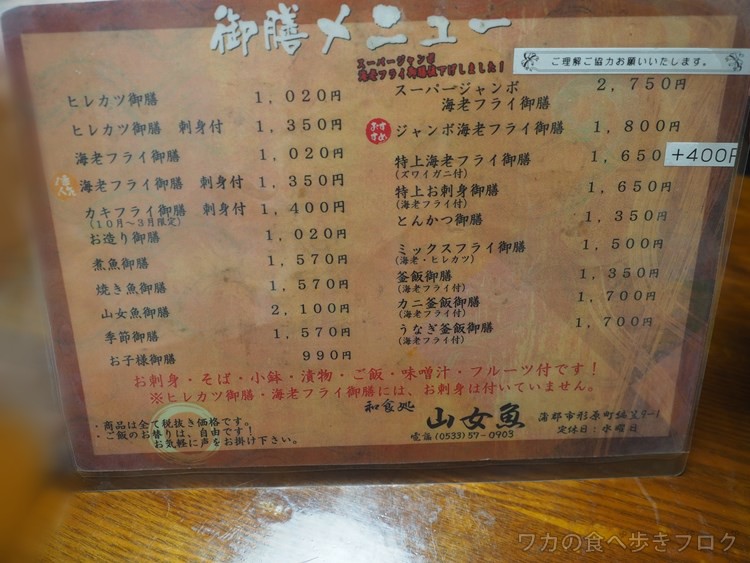 御膳メニュー
スーパージャンボ
海老フライ御膳値下げしました!
ご理解ご協力お願いいたします。
ヒレカツ御膳 1,020円
ヒレカツ御膳 刺身付 1,350円
海老フライ御膳 1,020円
海老フライ御膳 刺身付 1,350円
カキフライ御膳 刺身付 1,400円
(10月~3月限定)
お造り御膳 1,020円
煮魚御膳 1,570円
焼き魚御膳 1,570円
山女魚御膳 2,100円
季節御膳 1,570円
お子様御膳 990円
スーパージャンボ 2,750円
海老フライ御膳
おすすめ ジャンボ海老フライ御膳 1,800円
特上海老フライ御膳 1,650 +400円
(ズワイガニ付)
特上お刺身御膳 1,650円
(海老フライ付)
とんかつ御膳 1,350円
ミックスフライ御膳 1,500円
(海老・ヒレカツ)
釜飯御膳 1,350円
(海老フライ付)
カニ釜飯御膳 1,700円
(海老フライ付)
うなぎ釜飯御膳 1,700円
(海老フライ付)
お刺身・そば・小鉢・漬物・ご飯・味噌汁・フルーツ付です!
※ヒレカツ御膳・海老フライ御膳には、お刺身は付いていません。
・商品は全て税抜き価格です。
・ご飯のお替りは、自由です!
お気軽に声をお掛け下さい。
和食処
山女魚
蒲郡市形原町
定休日:水曜日
電話(0533)57-0903
ワカの食べ歩きブログ